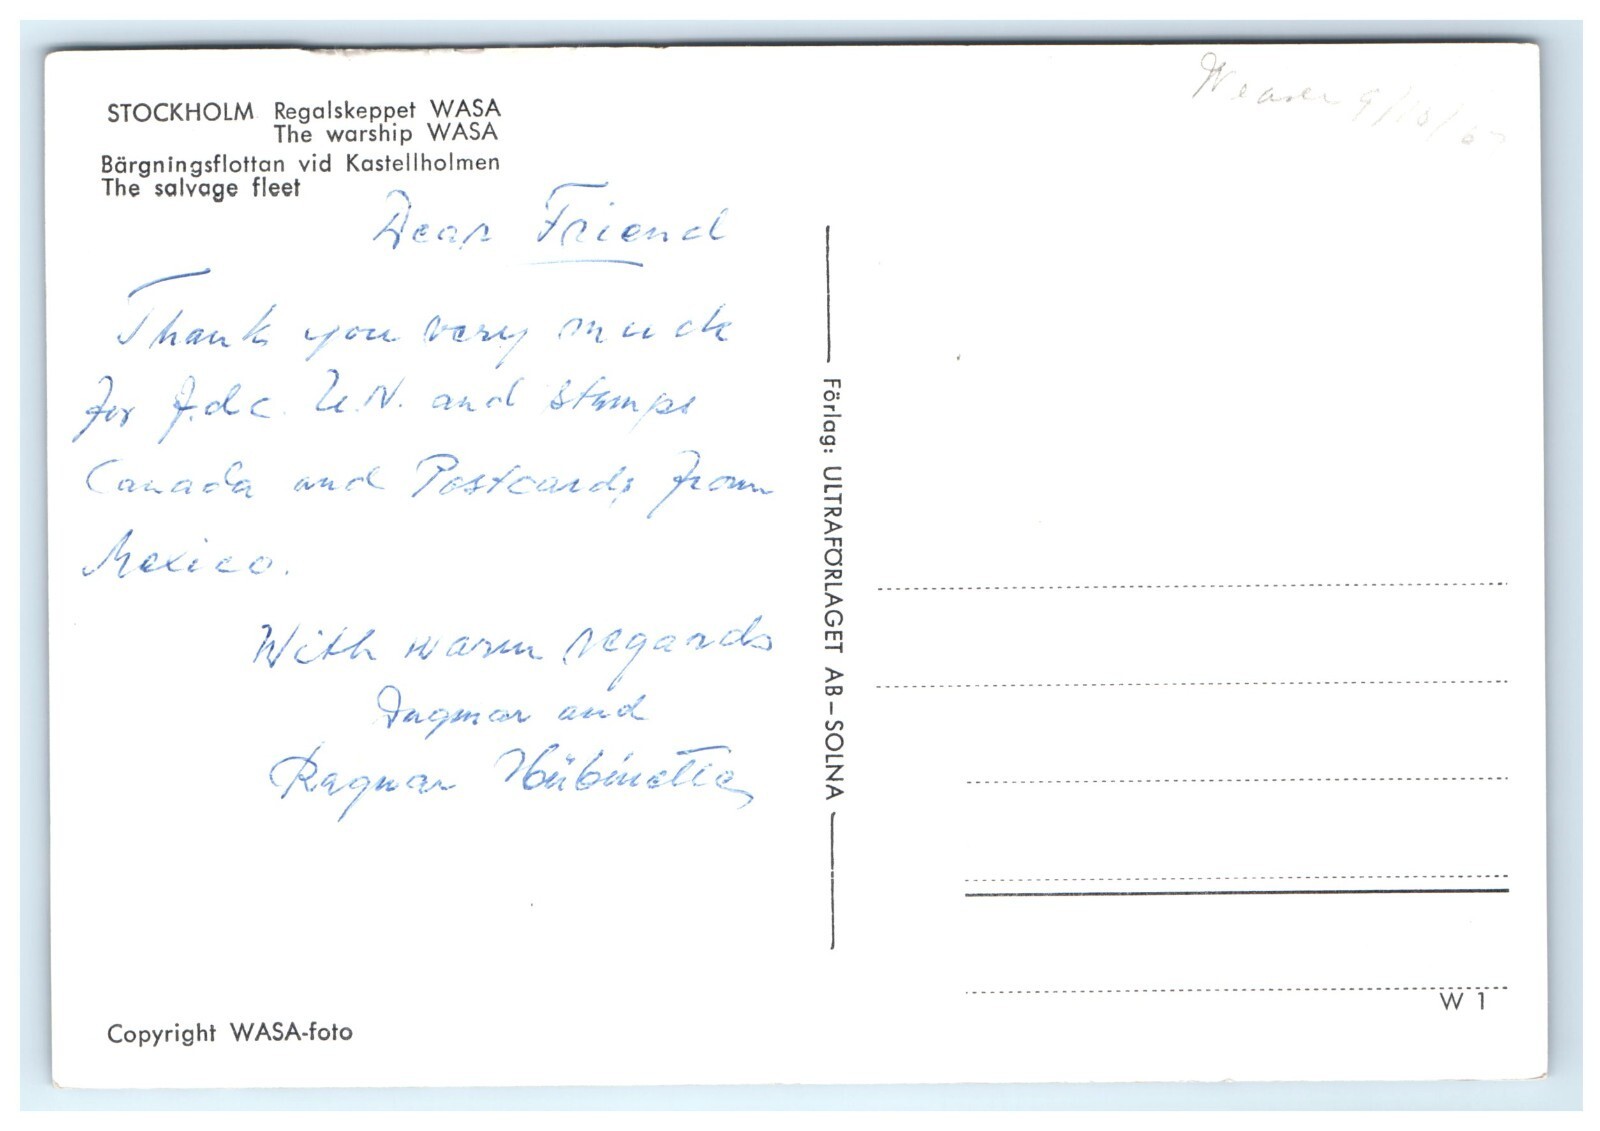 STOCKHOLM Regalskeppet WASA
The warship WASA
Bärgningsflottan vid Kastellholmen
The salvage fleet
Dear Friend
Thank you very much
for f.d.c. U.N. and stamps
Canada and Postcards from
Mexico.
With warm regards
Ingmar and
Ragnar Hübinette
Copyright WASA-foto
Förlag: ULTRAFÖRLAGET AB – SOLNA
W 1